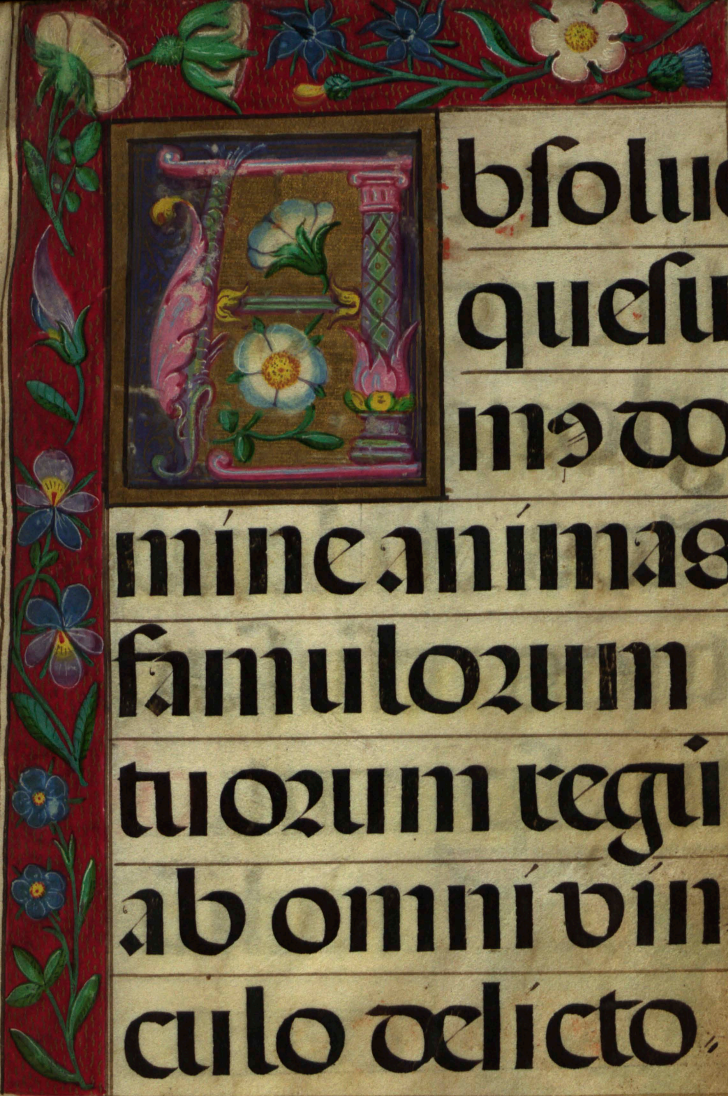 Absolue
quesu
mꝯ do
mine animas
famulorum
tuorum regū
ab omni vin
culo delicto